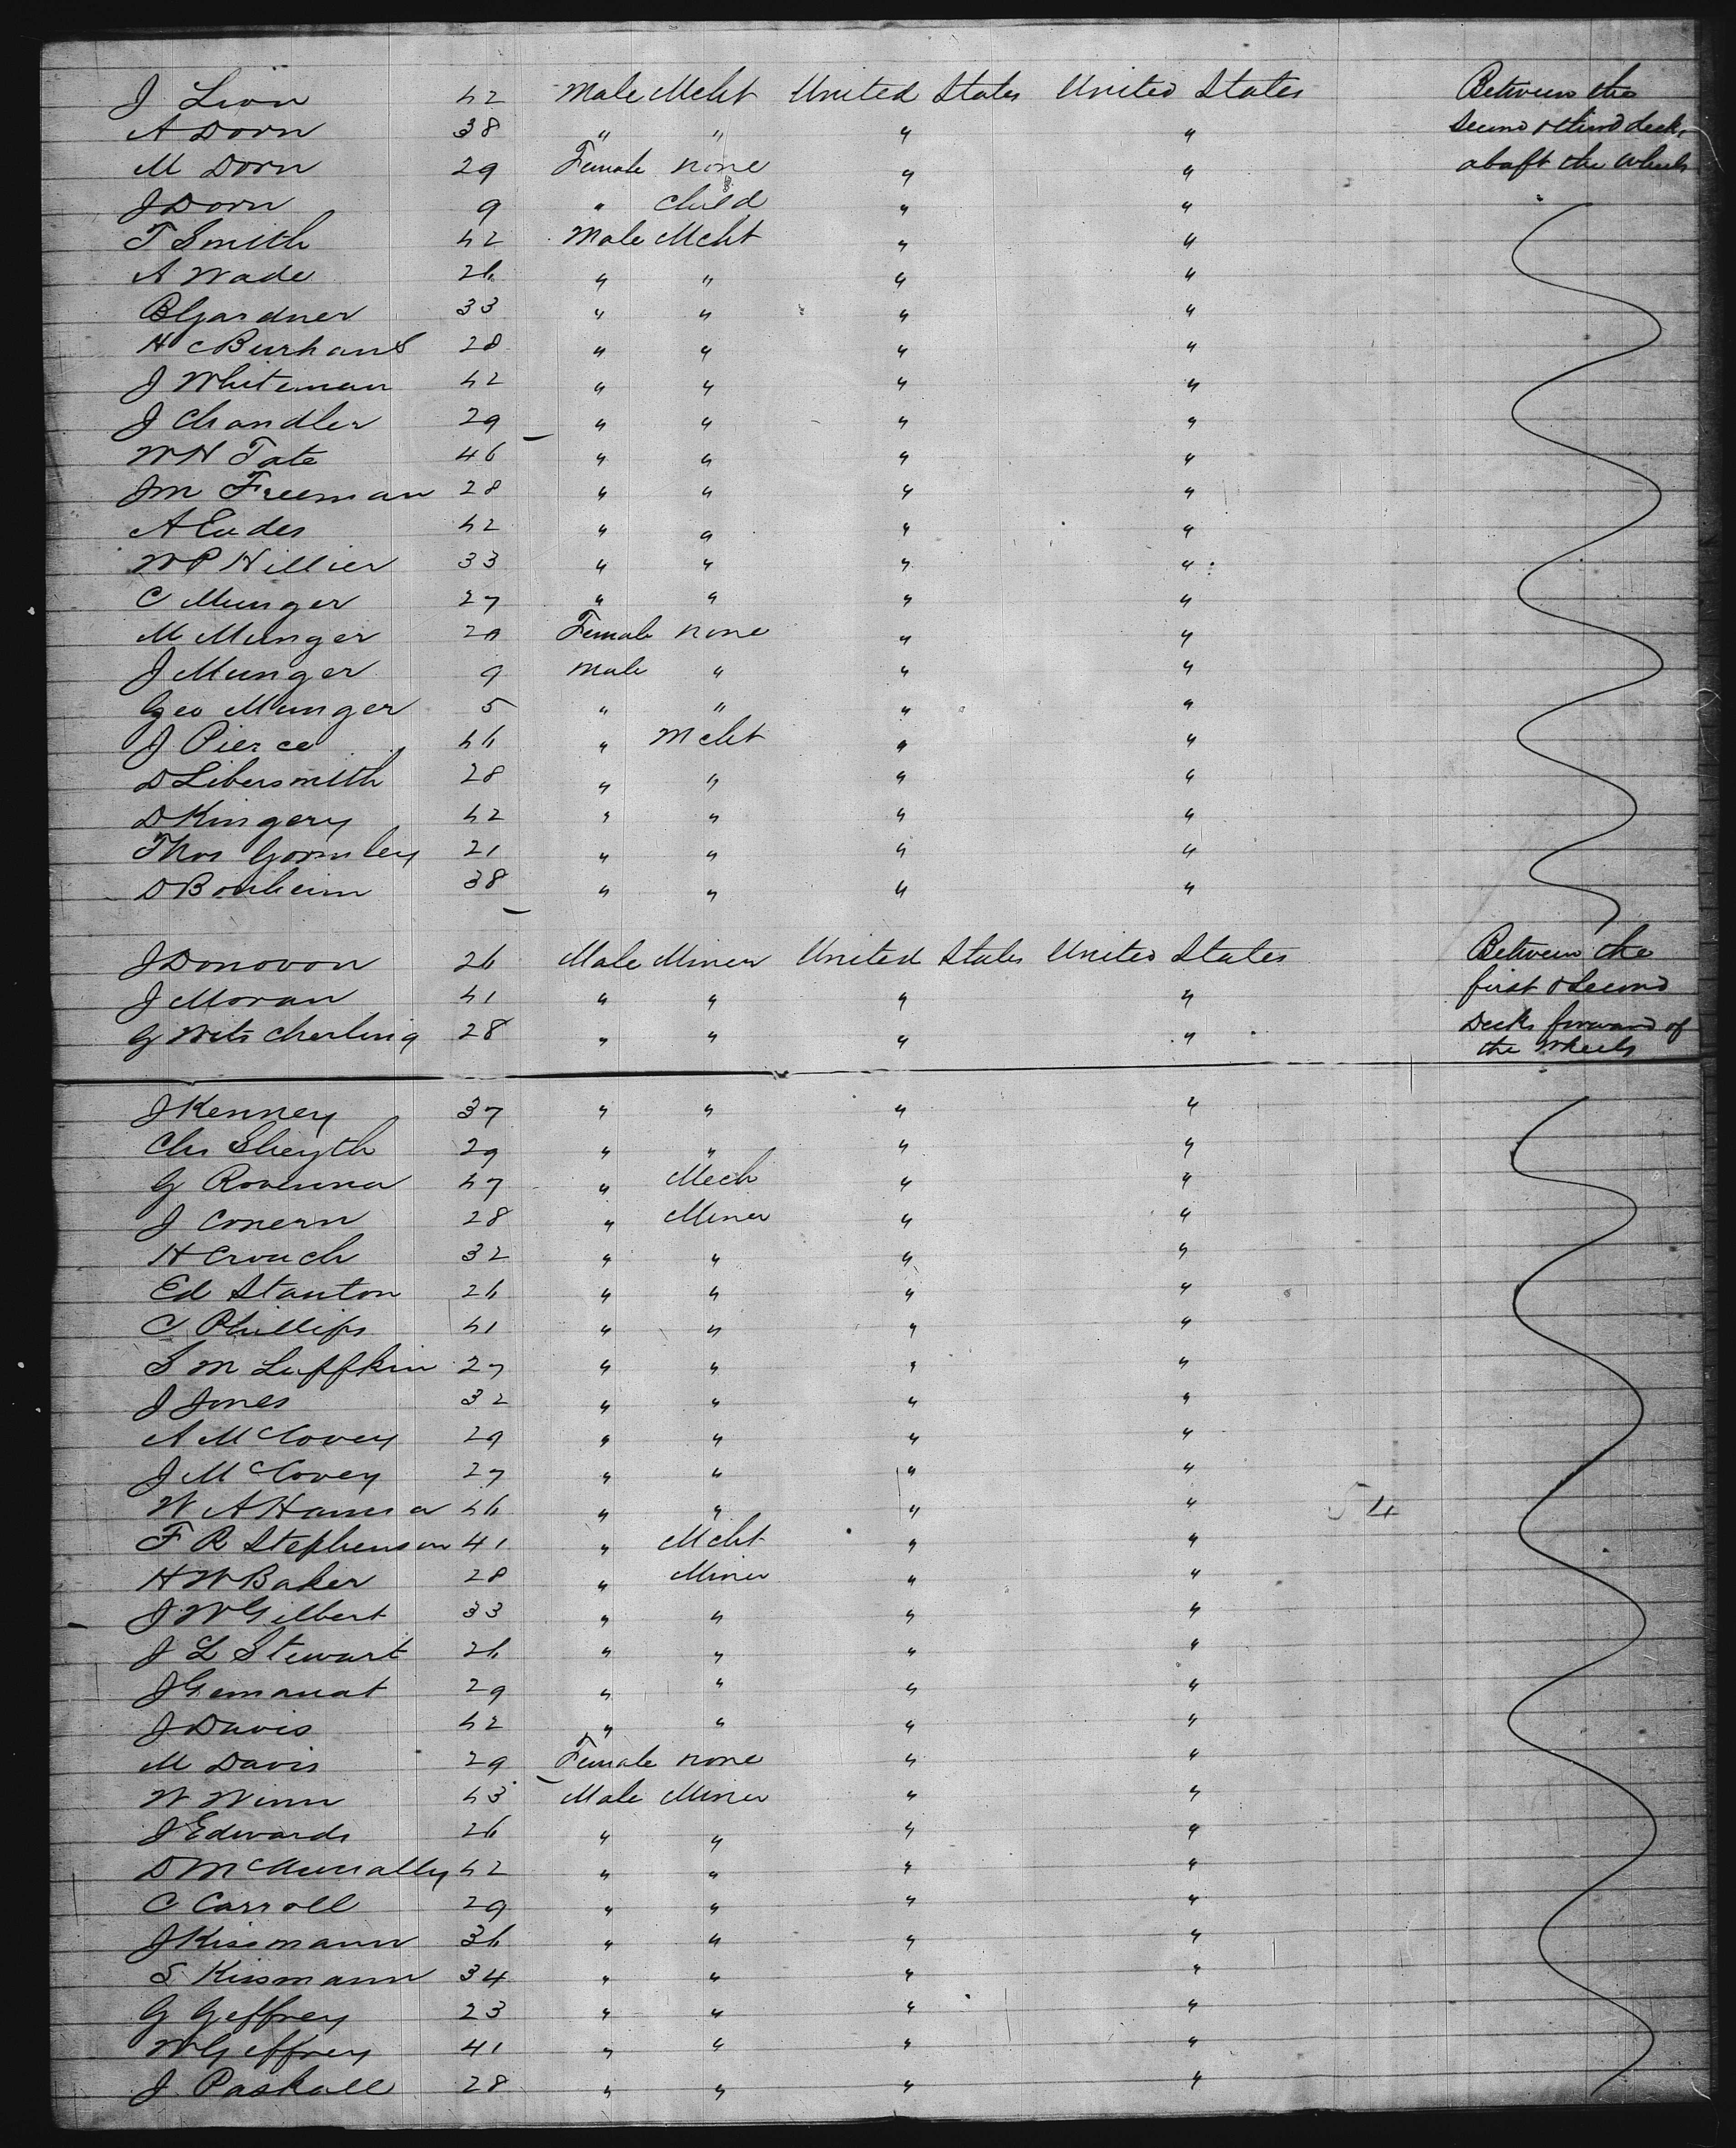 J Lion 42 Male Mcht United States United States Between the
A Dorn 38 " " " " second & third deck
M Dorn 29 Female none " " abaft the wheels
J Dorn 9 " child " "
T Smith 42 Male Mcht " "
A Wade 26 " " " "
B Gardner 33 " " " "
H C Burhans 28 " " " "
J Whiteman 42 " " " "
J Chandler 29 " " " "
W H Tate 46 " " " "
J M Freeman 28 " " " "
A Eudes 42 " " " "
W P Hillier 33 " " " "
C Munger 27 " " " "
M Munger 29 Female none " "
J Munger 9 Male " " "
Geo Munger 5 " " " "
J Pierce 46 " Mcht " "
D Libersmith 28 " " " "
D Kingery 42 " " " "
Thos Gormley 21 " " " "
D Bonheim 38 " " " "
J Donovon 26 Male Miner United States United States Between the
J Moran 41 " " " " first & second
G Witscherling 28 " " " " Decks forward of
the Wheels
J Kenney 37 " " " "
Chs Sheyth 29 " " " "
G Rovenna 47 " Mech " "
J Conern 28 " Miner " "
H Crouch 32 " " " "
Ed Stanton 26 " " " "
C Phillips 41 " " " "
S M Luffkin 27 " " " "
J Jones 32 " " " "
A McCovey 29 " " " "
J McCovey 27 " " " "
W A Hanna 46 " " " " 54
F R Stephenson 41 " Mcht " "
H W Baker 28 " Miner " "
J W Gilbert 33 " " " "
J L Stewart 26 " " " "
J Gemanat 29 " " " "
J Davis 42 " " " "
M Davis 29 Female none " "
W Winn 43 Male Miner " "
J Edwards 26 " " " "
D McNunally 42 " " " "
C Carroll 29 " " " "
J Kissmann 36 " " " "
S Kissmann 34 " " " "
G Geffrey 23 " " " "
W Geffrey 41 " " " "
J Paskall 28 " " " "